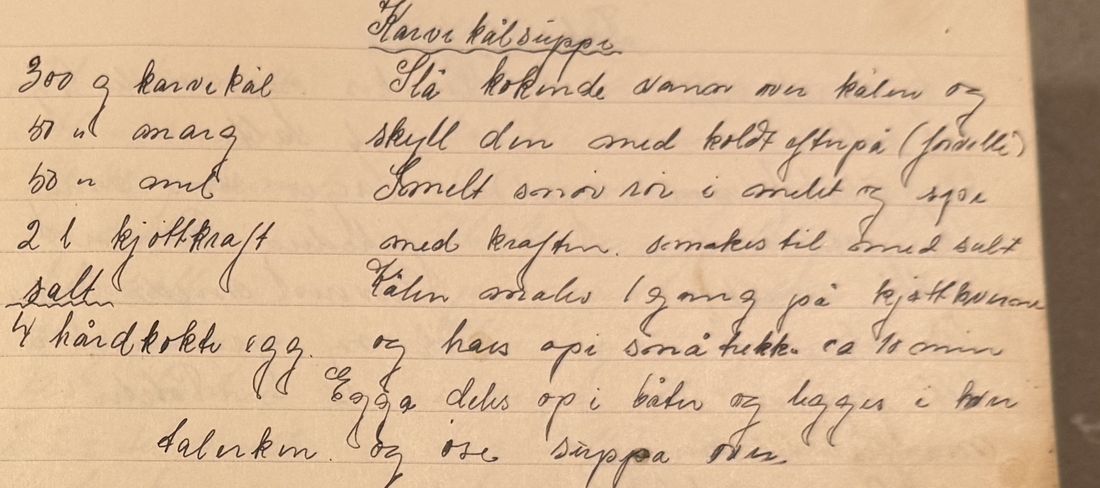 Karvekålsuppe
300 g karvekål Slå kokende vann over kålen og
50 " marg skyll den med koldt efterpå (forvelle)
50 " mel Smelt smør rør i melet og spe
2 l kjøttkraft med kraften. smakes til med salt
salt Kålen males 1 gang på kjøttkvern
4 hårdkokte egg. og haes opi småtrekk. ca 10 min
Egga deles op i båter og legges i hver
talerken. og øse suppa over